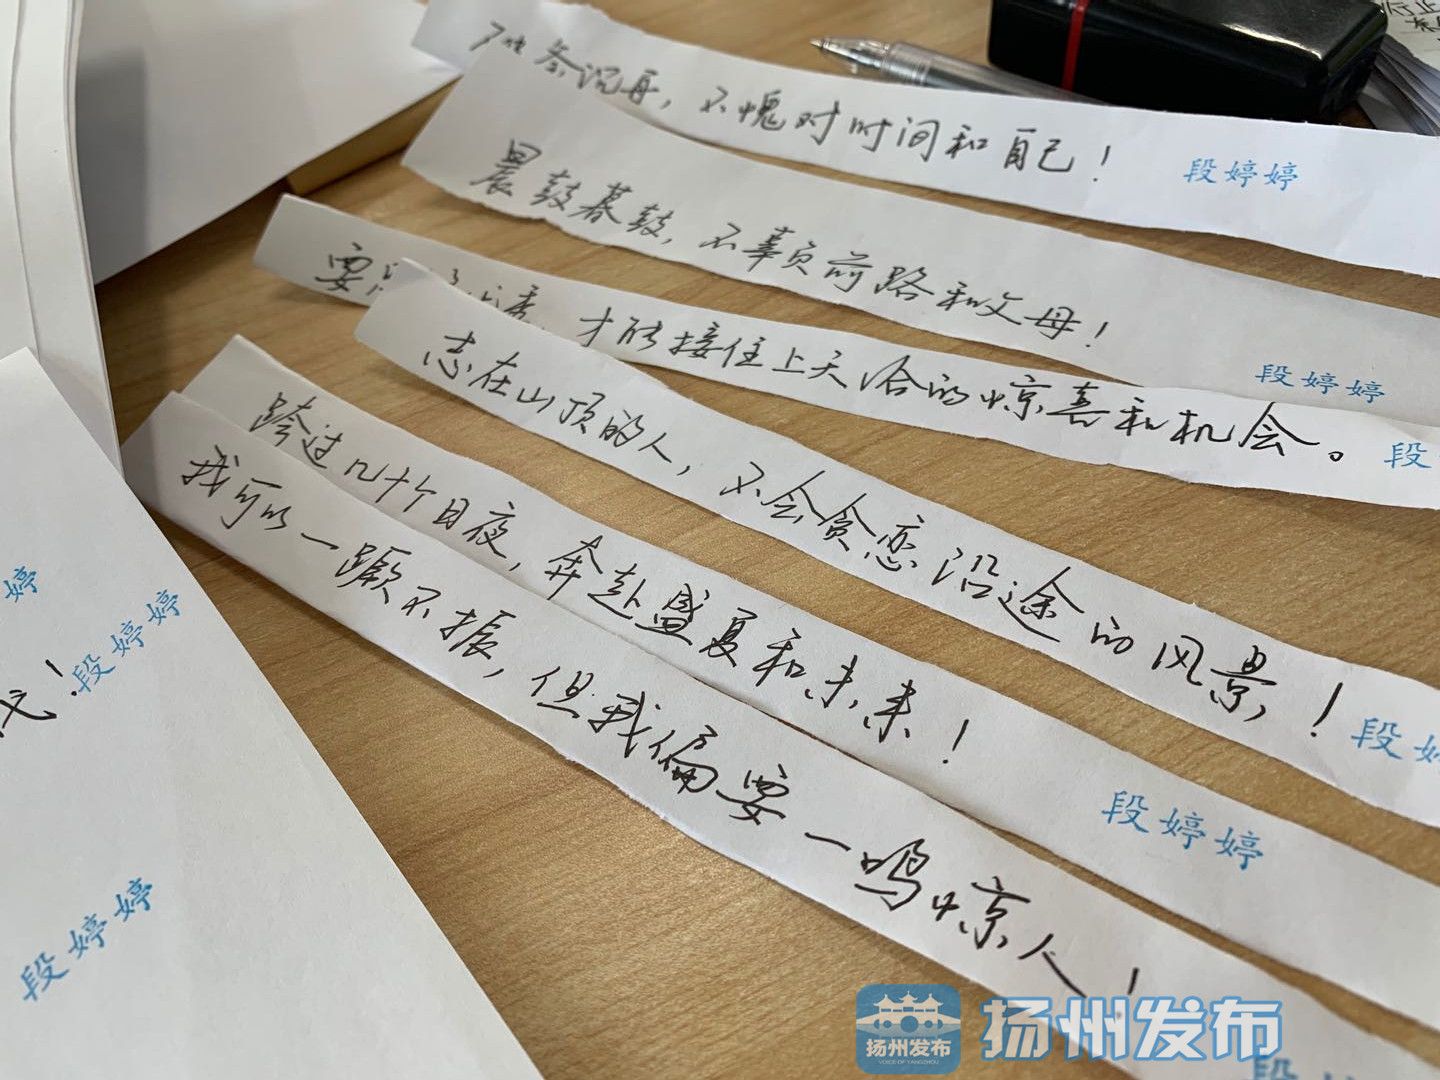 不愧对时间和自己！
段婷婷
晨鼓暮鼓，不辜负前路和父母！
段婷婷
要 才能接住上天给的惊喜和机会。
段
志在山顶的人，不会贪恋沿途的风景！
段婷
跨过几十个日夜，奔赴盛夏和未来！
段婷婷
我可以一蹶不振，但我偏要一鸣惊人！
段婷
婷
！段婷婷
段婷婷
扬州发布
VOICE OF YANGZHOU
扬州发布